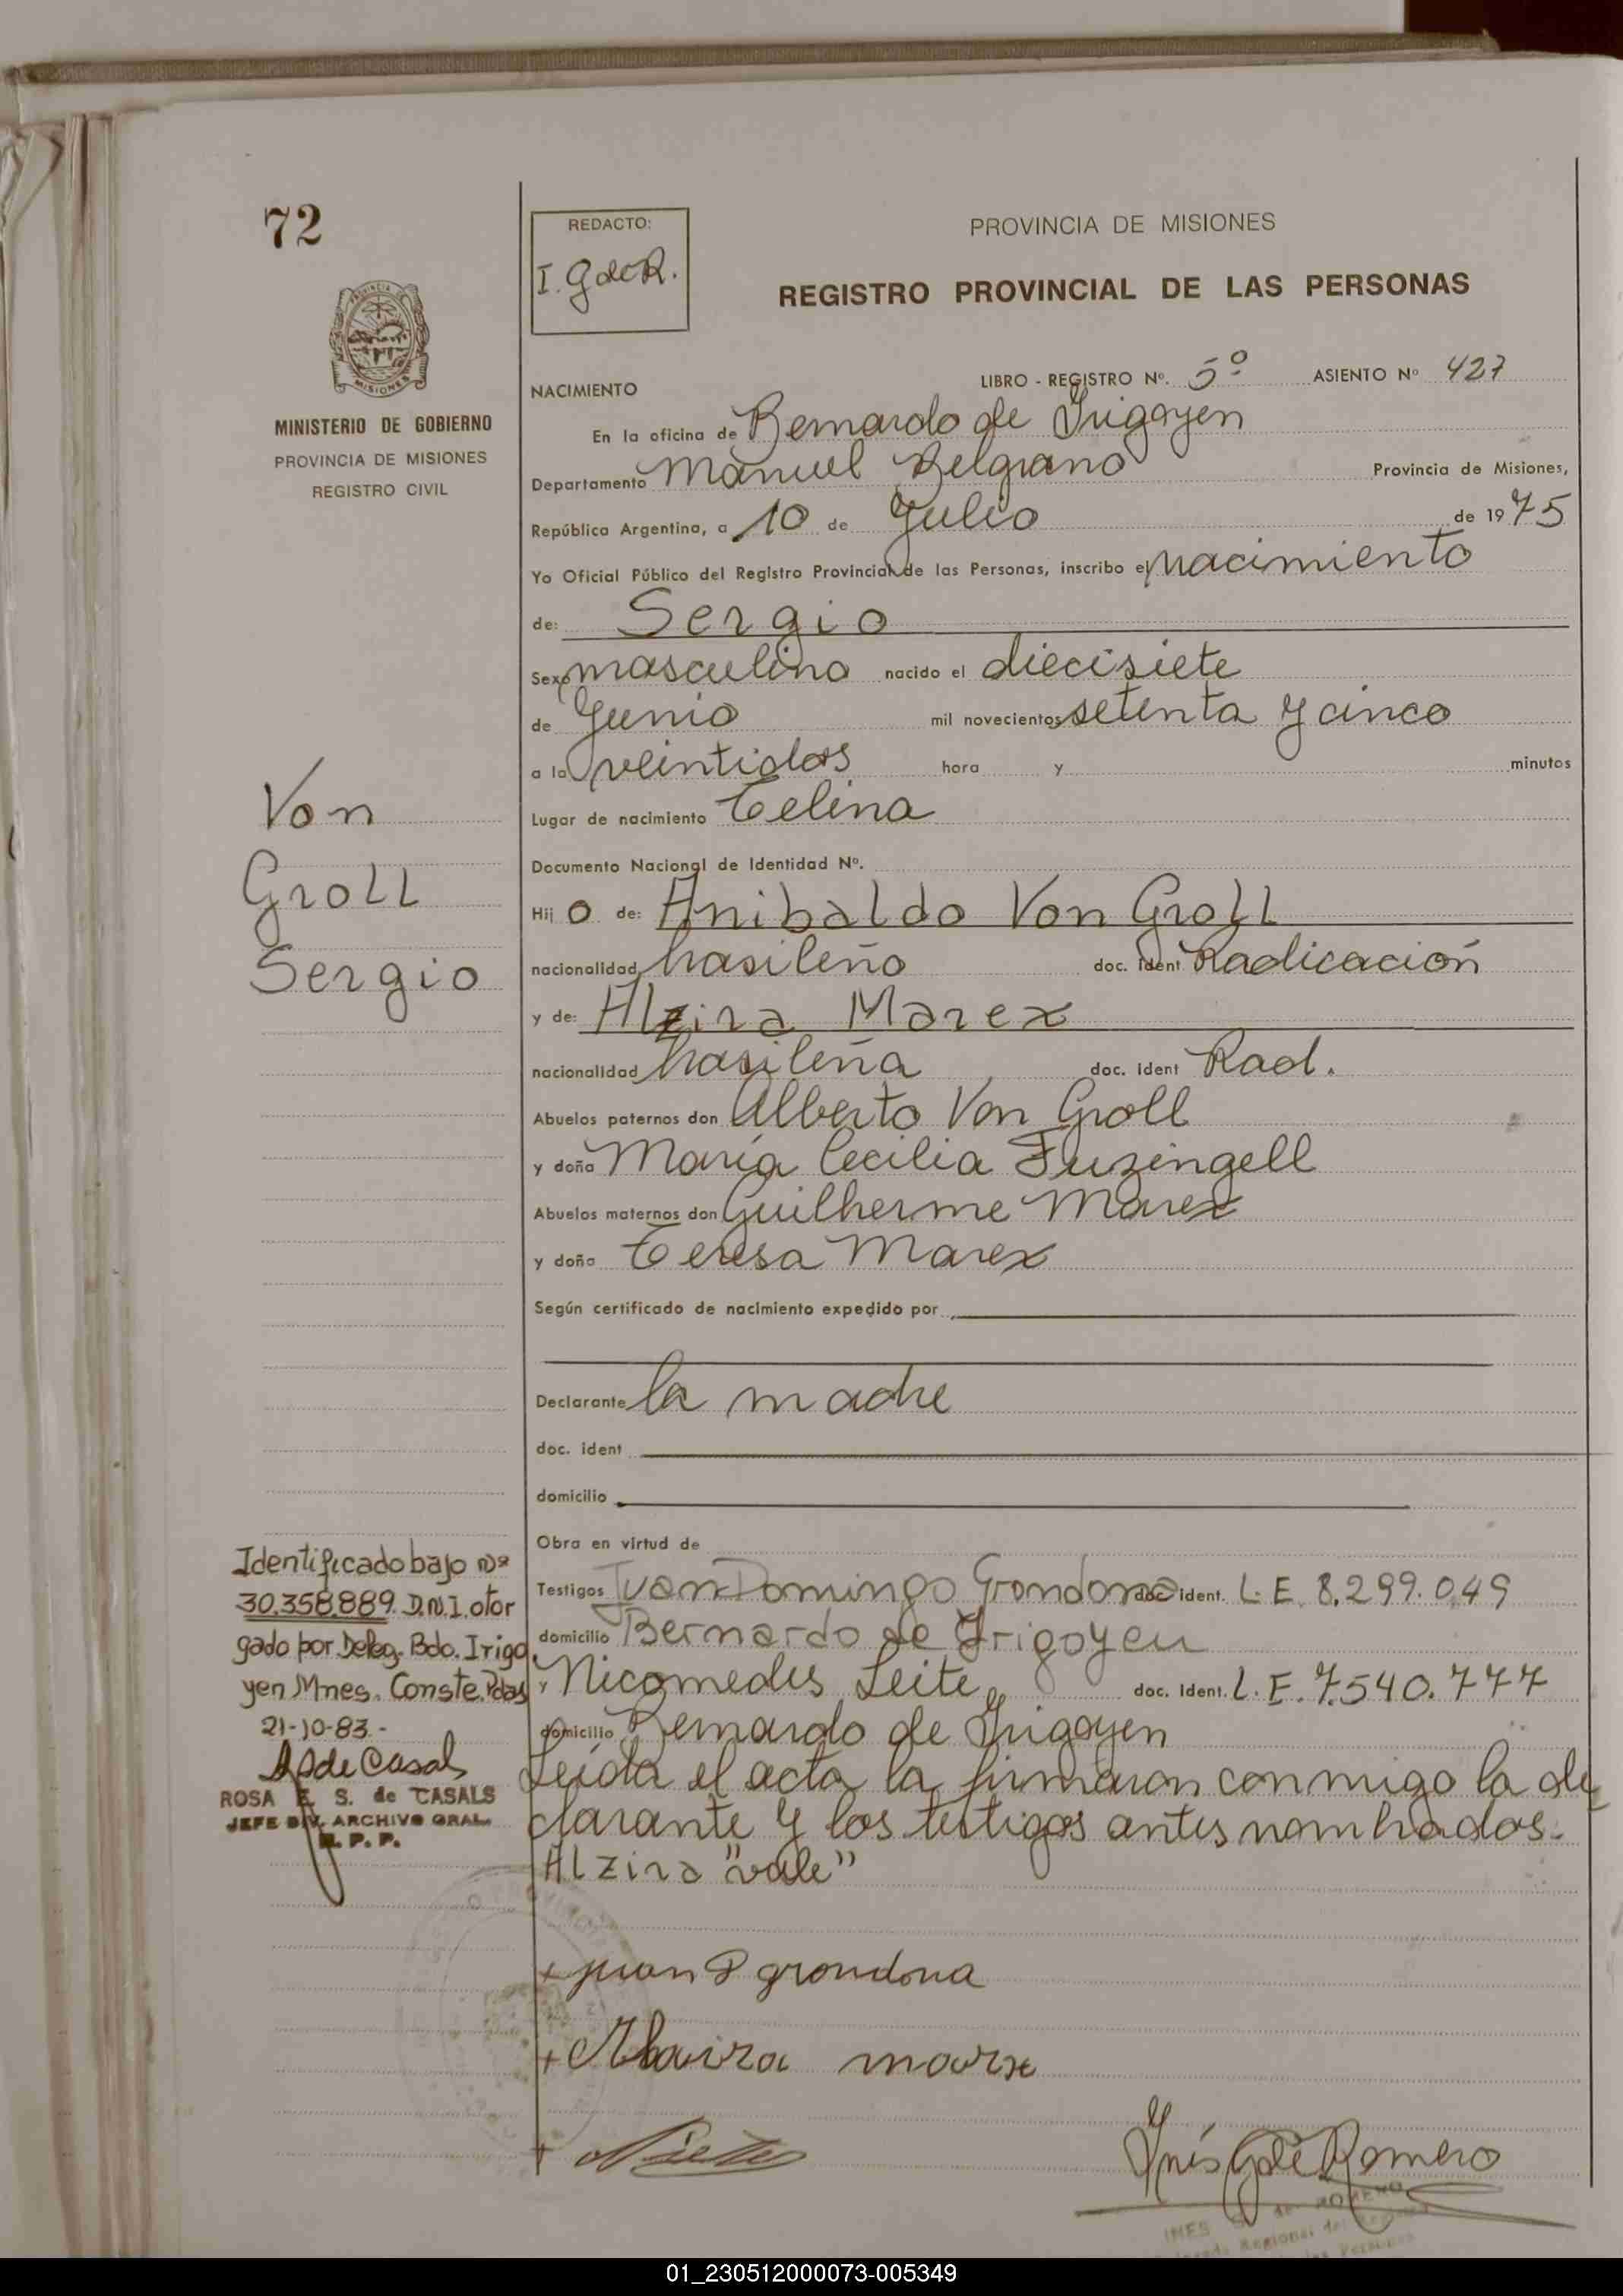 72
REDACTO:
I. G de R.
PROVINCIA DE MISIONES
REGISTRO PROVINCIAL DE LAS PERSONAS
PROVINCIA DE
MISIONES
MINISTERIO DE GOBIERNO
PROVINCIA DE MISIONES
REGISTRO CIVIL
NACIMIENTO LIBRO - REGISTRO Nº. 5º ASIENTO Nº 427
En la oficina de Bernardo de Irigoyen
Departamento Manuel Belgrano Provincia de Misiones,
República Argentina, a 10 de Julio de 1975
Yo Oficial Público del Registro Provincial de las Personas, inscribo el nacimiento
de: Sergio
Sexo masculino nacido el diecisiete
de Junio mil novecientos setenta y cinco
a la veintidos hora y minutos
Lugar de nacimiento Celina
Documento Nacional de Identidad Nº.
Hijo de: Anibaldo Von Groll
nacionalidad brasileño doc. ident Radicación
y de: Alzira Marex
nacionalidad brasileña doc. ident Rad.
Abuelos paternos don Alberto Von Groll
y doña María Cecilia Fuzingell
Abuelos maternos don Guilherme Marex
y doña Teresa Marex
Según certificado de nacimiento expedido por
Declarante la madre
doc. ident
domicilio
Obra en virtud de
Testigos Juan Domingo Grondona doc. ident. L.E. 8.299.049
domicilio Bernardo de Irigoyen
y Nicomedes Leite doc. ident. L.E. 7.540.777
domicilio Bernardo de Irigoyen
Leída el acta la firmaron conmigo la de
clarante y los testigos antes nombrados.
Alzira "vale"
+ juan D grondona
+ marx
+
Inés G de Romero
INES G. de ROMERO
Von
Groll
Sergio
Identificado bajo Nº
30.358.889. D.N.I. otor
gado por Deleg. Bdo. Irigo
yen Mnes. Conste. Pdas
21-10-83.-
ROSA E. S. de CASALS
JEFE DIV. ARCHIVO GRAL.
R. P. P.
01_230512000073-005349